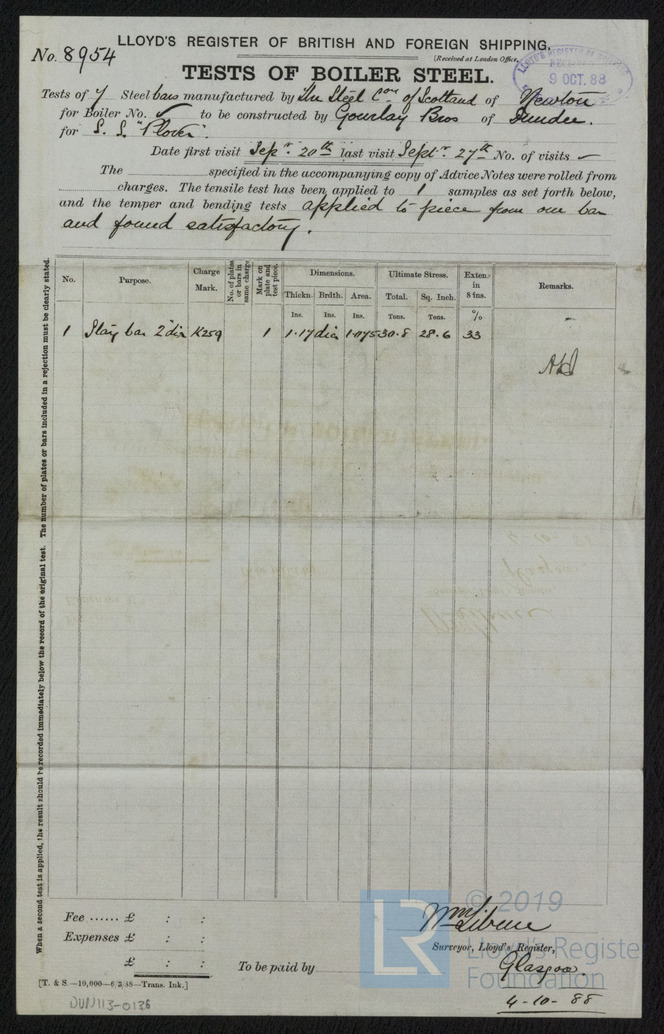 No. 8954
LLOYD'S REGISTER OF BRITISH AND FOREIGN SHIPPING.
(Received at London Office,
9 OCT. 88
TESTS OF BOILER STEEL.
Tests of 7 Steel bars manufactured by The Steel Coy of Scotland of Newton
for Boiler No. ✓ to be constructed by Gourlay Bros of Dundee.
for S. S. "Plover".
Date first visit Sepr. 20th last visit Septr. 27th No. of visits ✓
The specified in the accompanying copy of Advice Notes were rolled from
charges. The tensile test has been applied to 1 samples as set forth below,
and the temper and bending tests applied to piece from one bar
and found satisfactory.
When a second test is applied, the result should be recorded immediately below the record of the original test. The number of plates or bars included in a rejection must be clearly stated.
No. Purpose. Charge Mark. No. of plates or bars in same charge Mark on plate and test piece. Dimensions. Ultimate Stress. Exten. in 8 ins. Remarks.
Thickn. Brdth. Area. Total. Sq. Inch.
Ins. Ins. Ins. Tons. Tons. %
1 Stay bar 2" dia K259 1 1.17 dia 1.075 30.8 28.6 33 -
Fee ...... £ : :
Expenses £ : :
£ : :
To be paid by
Surveyor, Lloyd's Register,
Glasgow.
4-10-88
[T. & S.—10,000—6/3/88—Trans. Ink.]
DUN113-0136
LR
© 2019
Lloyd's Register
Foundation